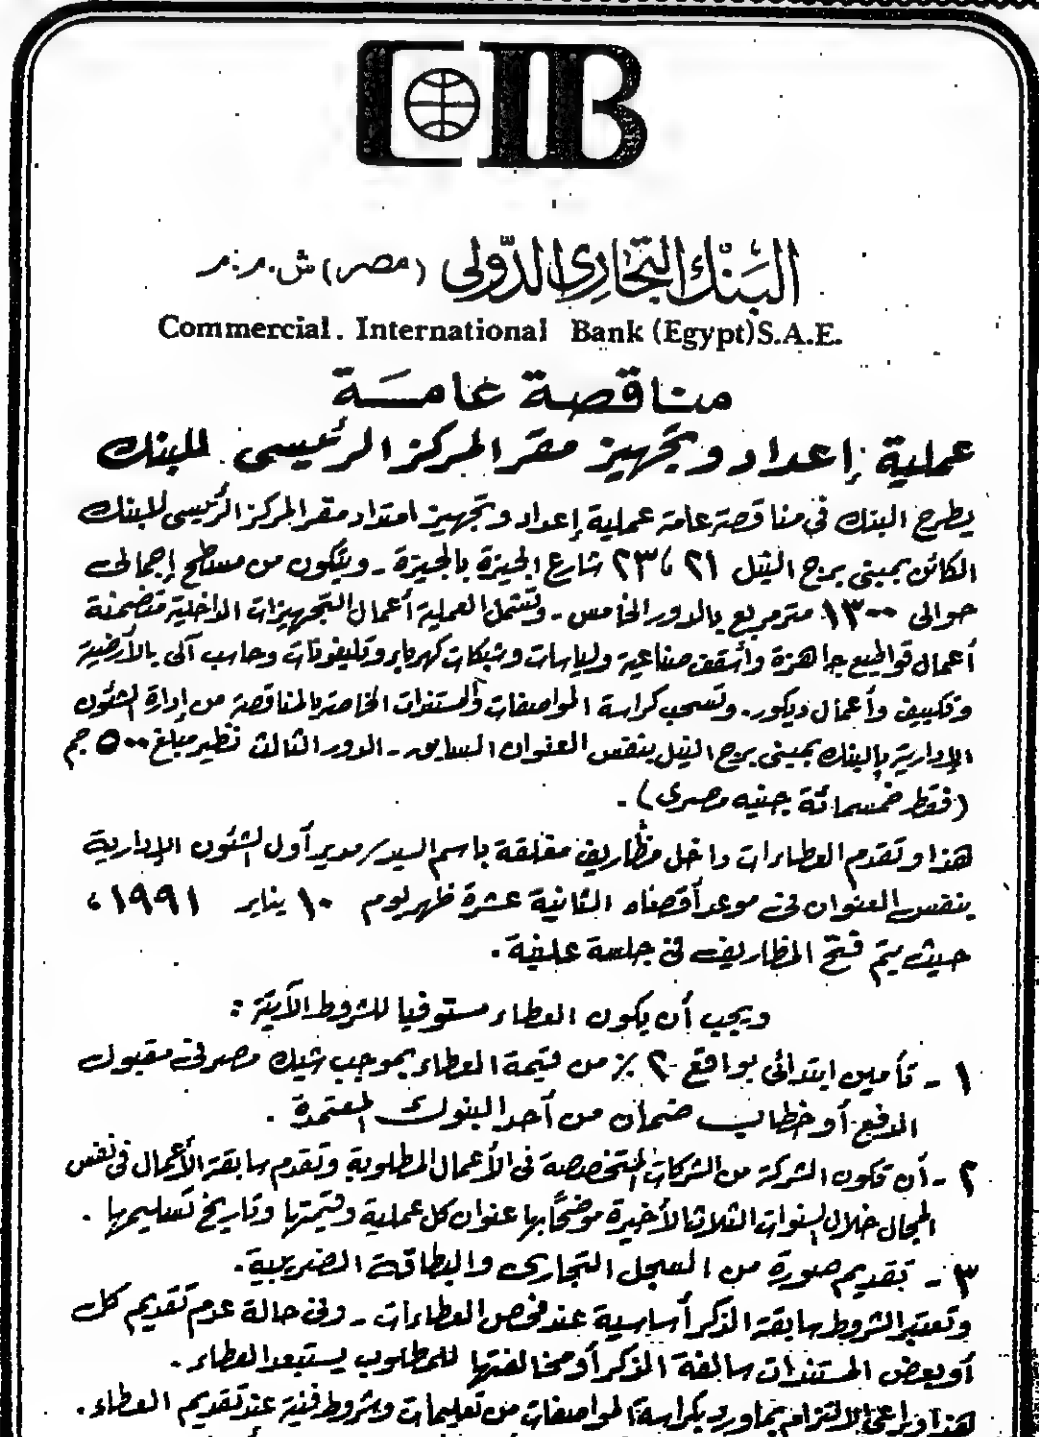 CIB
البنك التجاري الدولي (مصر) ش.م.م
Commercial. International Bank (Egypt) S.A.E.
مناقصة عامة
عملية إعداد وتجهيز مقر المركز الرئيسى للبنك
يطرح البنك فى مناقصة عامة عملية إعداد وتجهيز امتداد مقر المركز الرئيسى للبنك
الكائن بمبنى برج النيل ٢١ ، ٢٣ شارع الجيزة بالجيزة - ويتكون من مسطح إجمالى
حوالى ١٣٠٠ مترمربع بالدور الخامس - وتشمل العملية أعمال التجهيزات الداخلية متضمنة
أعمال قواطيع جاهزة وأسقف صناعية ولياسات وشبكات كهرباء وتليفونات وحاسب آلى بالأرضية
وتكييف وأعمال ديكور. وتسحب كراسة المواصفات والمستندات الخاصة بالمناقصة من إدارة الشئون
الإدارية بالبنك بمبنى برج النيل بنفس العنوان السابق - الدور الثالث نظير مبلغ ٥٠٠ جم
(فقط خمسمائة جنيه مصرى) .
هذا وتقدم العطاءات داخل مظاريف مغلقة باسم السيد / مدير أول الشئون الإدارية
بنفس العنوان فى موعد أقصاه الثانية عشرة ظهر يوم ١٠ يناير ١٩٩١ ،
حيث يتم فتح المظاريف فى جلسة علنية .
ويجب أن يكون العطاء مستوفيا للشروط الآتية :
١ - تأمين ابتدائى بواقع ٢ ٪ من قيمة العطاء بموجب شيك مصرفى مقبول
الدفع أو خطاب ضمان من أحد البنوك المعتمدة .
٢ - أن تكون الشركة من الشركات المتخصصة فى الأعمال المطلوبة وتقدم سابقة الأعمال فى نفس
المجال خلال السنوات الثلاث الأخيرة موضحًا بها عنوان كل عملية وقيمتها وتاريخ تسليمها .
٣ - تقديم صورة من السجل التجارى والبطاقة الضريبية .
وتعتبر الشروط سابقة الذكر أساسية عند فحص العطاءات - وفى حالة عدم تقديم كل
أو بعض المستندات سالفة الذكر أو مخالفتها للمطلوب يستبعد العطاء .
هذا ويراعى الالتزام بما ورد بكراسة المواصفات من تعليمات وشروط فنية عند تقديم العطاء .